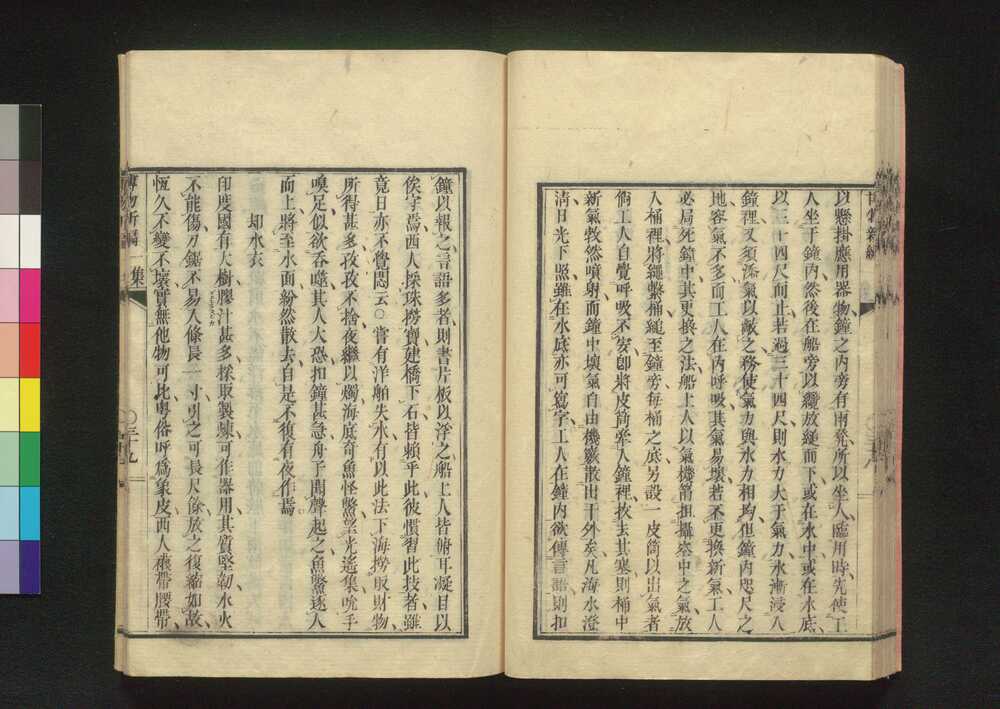 以懸掛應用器物、鐘之內旁有兩凳、所以坐人、臨用時、先使工
人坐于鐘內、然後在船旁以纜放縋而下、或在水中、或在水底、
以三十四尺而止、若過三十四尺、則水力大于氣力、水漸浸入
鐘裡、又須添氣以敵之、務使氣力與水力相均、但鐘內咫尺之
地、容氣不多、而工人在內呼吸、其氣易壞、若不更換新氣、工人
必局死鐘中、其更換之法、船上人以氣機筩担攝空中之氣、放
入桶裡、將繩繫桶、縋至鐘旁、每桶之底、另設一皮筒、以出氣者、
倘工人自覺呼吸不安、卽將皮筒牽入鐘裡、拔去其塞、則桶中
新氣敎然噴射、而鐘中壞氣、自由機竅散出于外矣、凡海水澄
淸、日光下照、雖在水底、亦可寫字、工人在鐘內欲傳言語、則扣
鐘以報之、言語多者、則書片板以浮之、船上人皆俯耳凝目以
俟乎焉、西人採珠撈寶、建橋下石、皆賴乎此、彼慣習此技者、雖
竟日亦不覺悶云○嘗有洋舶失水、有以此法下海撈取財物、
所得甚多、孜孜不捨、夜繼以燭、海底奇魚怪鱉、望光遙集、吮手
嗅足、似欲吞噬、其人大恐、扣鐘甚急、舟子聞聲起之、魚鱉逐人
而上、將至水面、紛然散去、自是不復有夜作焉
却水衣
印度國有大樹、膠汁甚多、採取製煉、可作器用、其質堅韌、水火
不能傷、刀鋸不易入、條長一寸、引之可長尺餘、放之復縮如故、
恆久不變不壞、實無他物可比、粤俗呼爲象皮、西人襪帶腰帶、
博物新編 一集
三十九